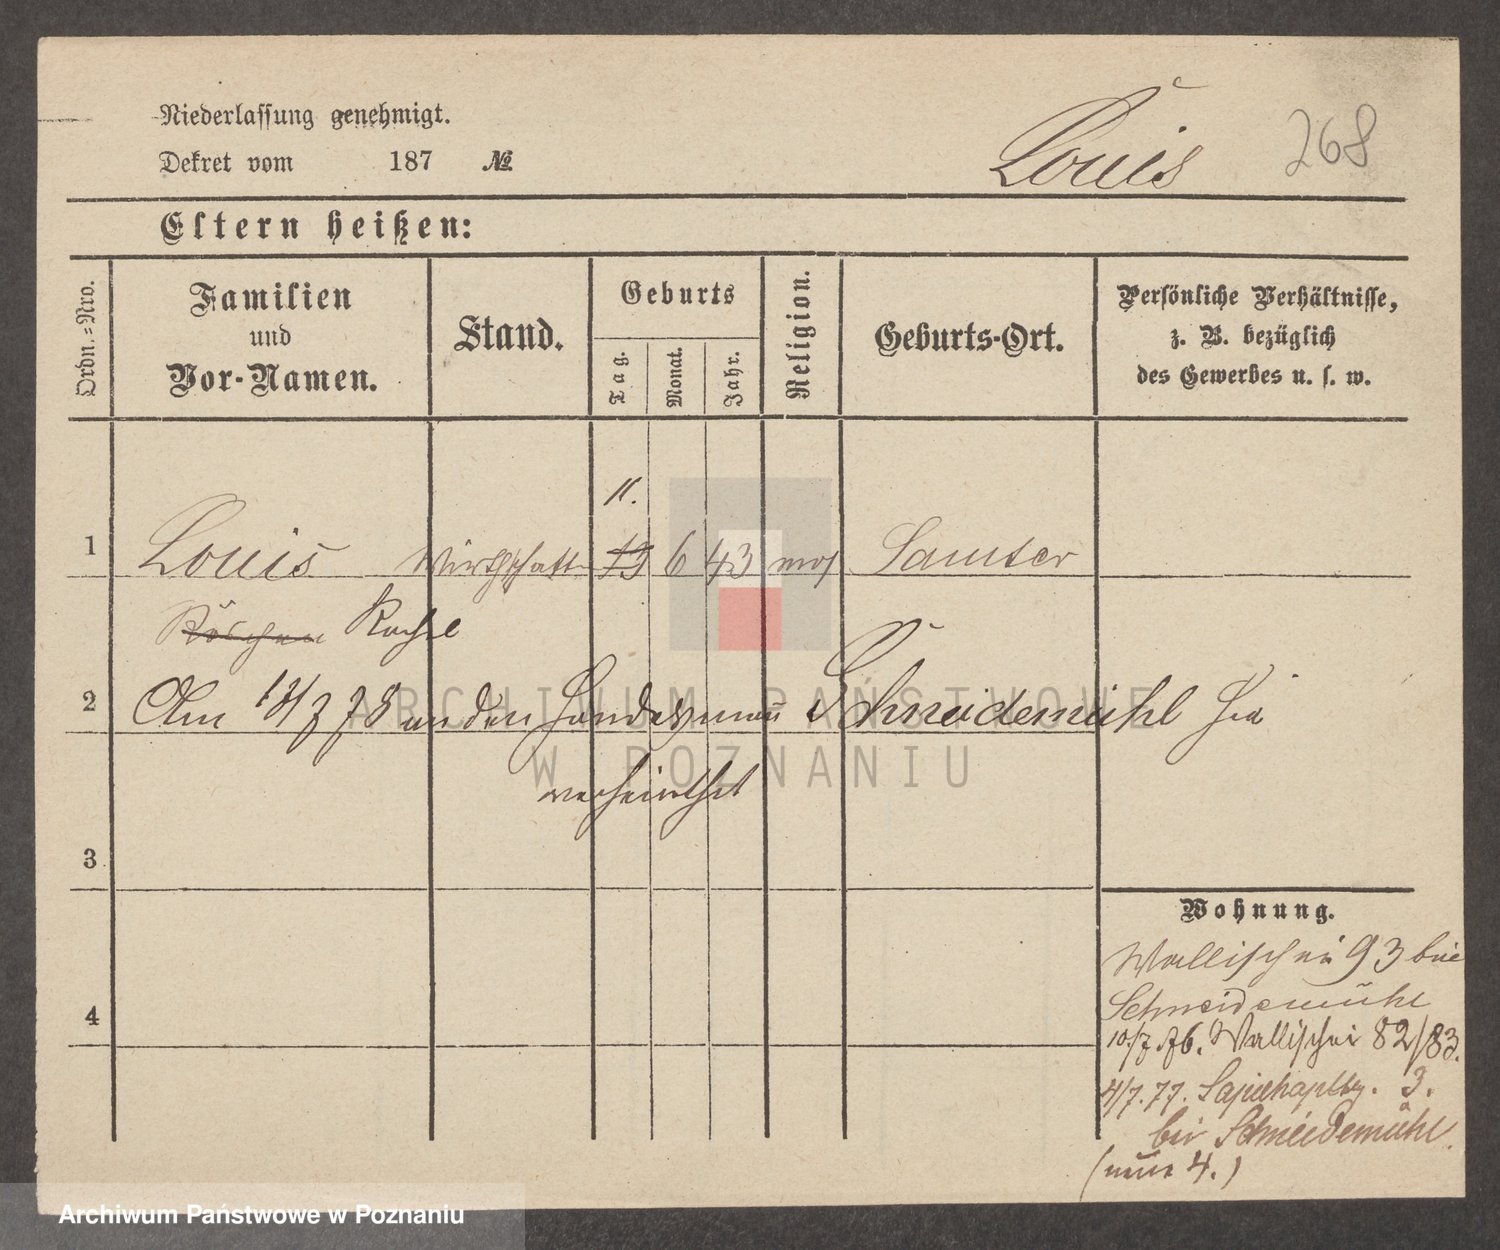 Niederlassung genehmigt.
Dekret vom 187 №
Louis 268
Eltern heißen:
Ordn.=Nro.
Familien
und
Vor-Namen.
Stand.
Geburts
Tag.
Monat.
Jahr.
Religion.
Geburts-Ort.
Persönliche Verhältnisse,
z. B. bezüglich
des Gewerbes u. s. w.
11.
1 Louis Wirthschaft 13 6 43 mos Samter
Röschen Rachel
2 Am 7 78 an den Handelsmann Schneidemühl hie
verheirathet
3
4
Wohnung.
Wallischei 93 bei
Schneidemühl
10/7 76. Wallischei 82/83.
4/7. 77. Sapiehaplatz. 3.
bei Schneidemühl
(neue 4.)
ARCHIWUM PAŃSTWOWE
W POZNANIU
Archiwum Państwowe w Poznaniu